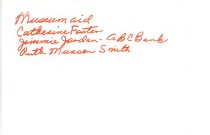 Museum aid
Catherine Foster
Jimmie Jordan - ABC Bank
Ruth Munson Smith